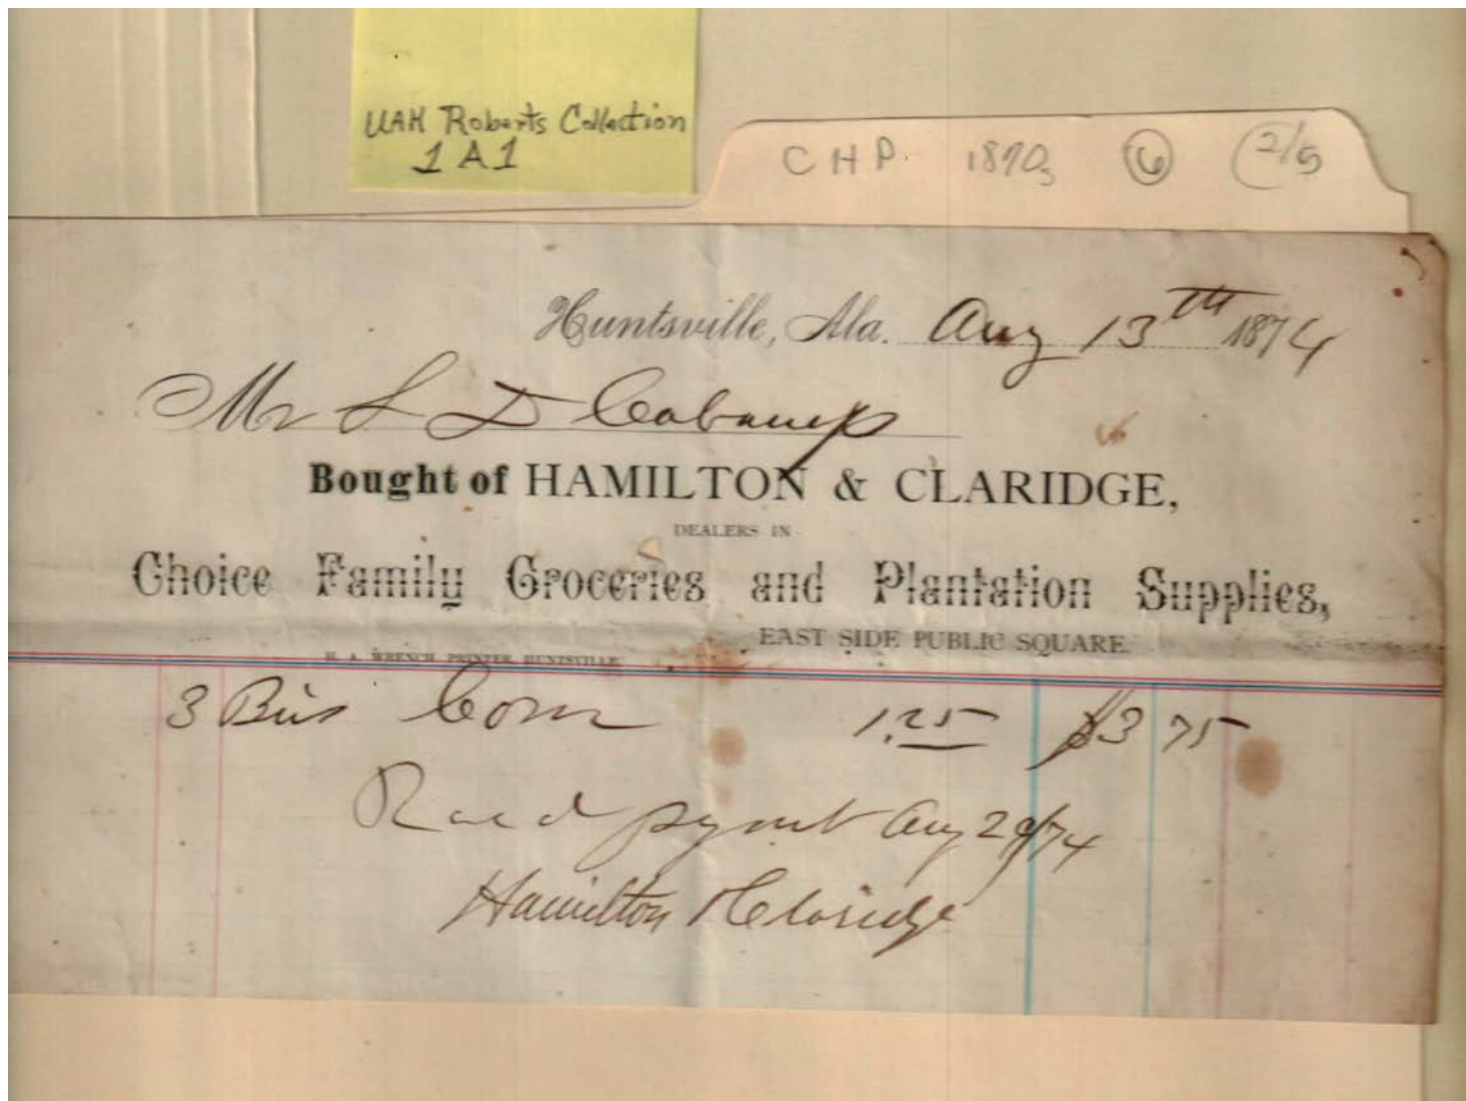 UAH Roberts Collection
1A1
CHP. 1870s 6 2/5
Huntsville, Ala. Aug 13th 1874
Mr S D Cabaniss
Bought of HAMILTON & CLARIDGE,
DEALERS IN
Choice Family Groceries and Plantation Supplies,
EAST SIDE PUBLIC SQUARE.
H. A. WRENCH PRINTER, HUNTSVILLE
3 Bus Corn 1.25 $3 75
Recd pymt Aug 29/74
Hamilton & Claridge